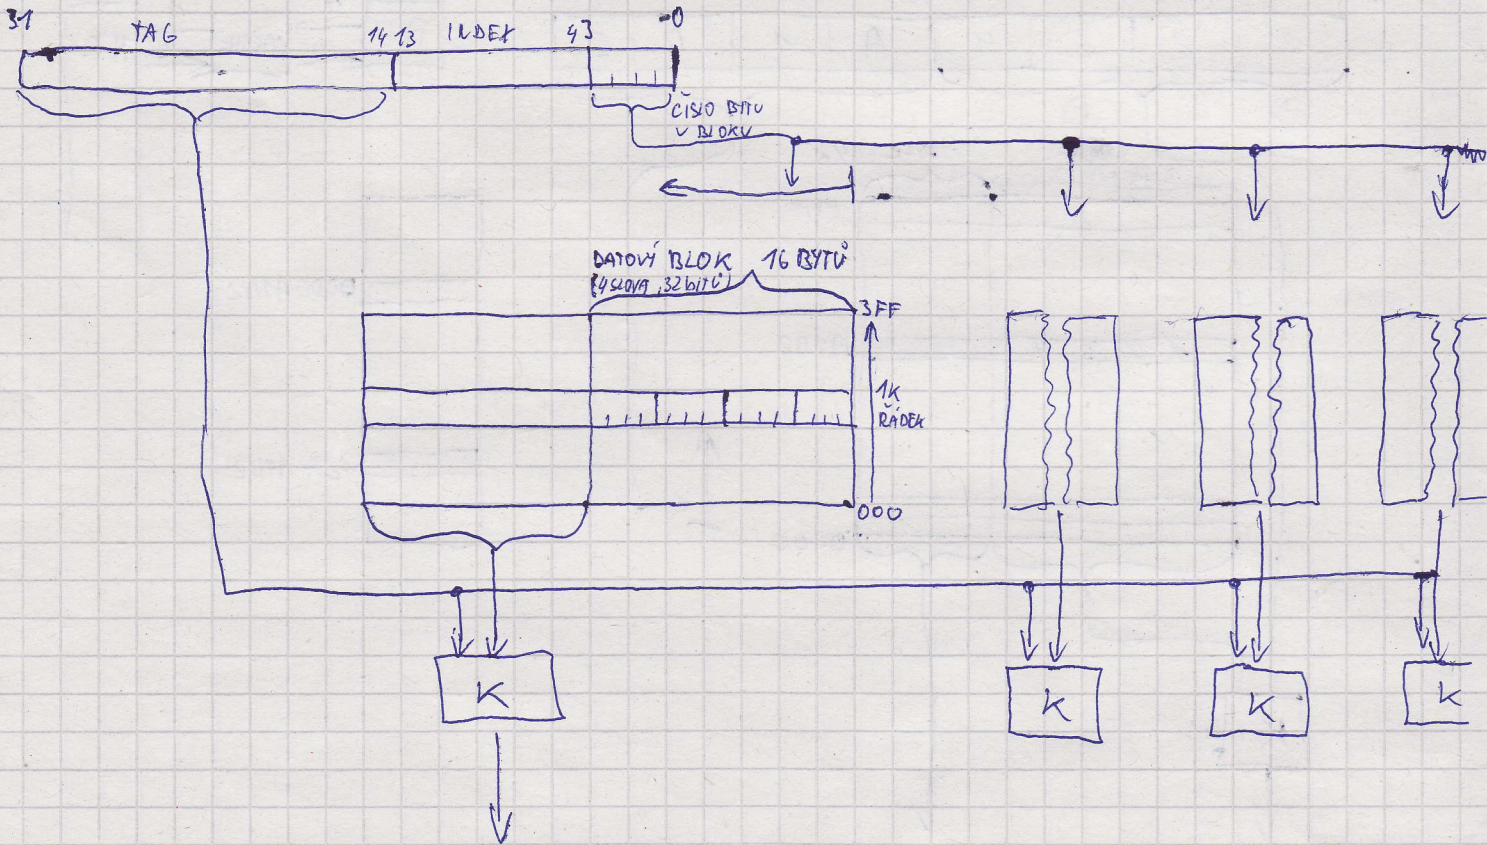 31 TAG 14 13 INDEX 4 3 0
ČÍSLO BITU
V BLOKU
DATOVÝ BLOK 16 BYTŮ
(4 SLOVA, 32 bitů)
3FF
1K
ŘÁDEK
000
K K K K